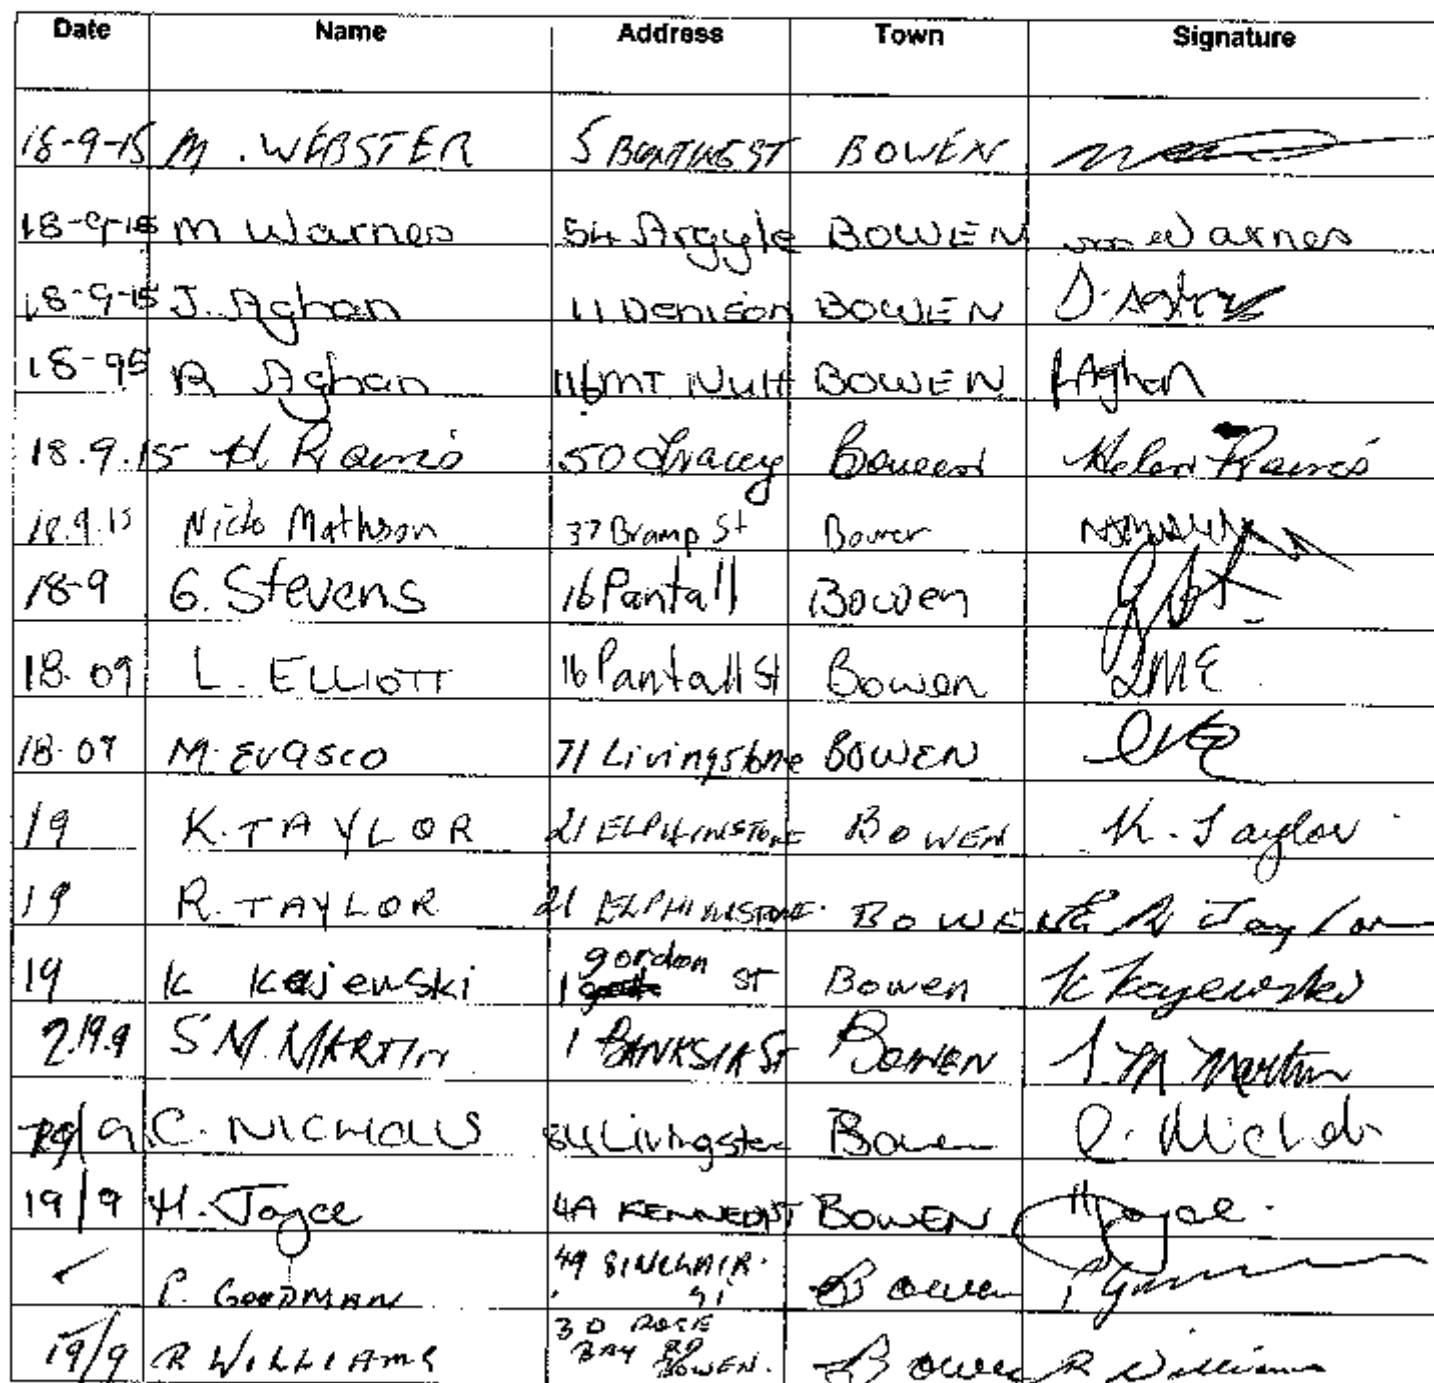 Date Name Address Town Signature
18-9-15 M. WEBSTER 5 ST BOWEN
18-9-15 M Warnes 54 Argyle BOWEN Warnes
18-9-15 J. Aghan 11 Denison BOWEN J. Aghan
18-95 R Aghan 116 MT Nutt BOWEN RAghan
18.9.15 H. Rains 50 Tracey Bowen Helen Rains
18.9.15 Nicto Mathson 37 Bramp St Bowen
18-9 G. Stevens 16 Pantall Bowen
18.09 L. ELLIOTT 16 Pantall St Bowen LME
18.09 M. Evasco 71 Livingstone BOWEN
19 K. TAYLOR 21 ELPHINSTONE BOWEN K. Taylor
19 R. TAYLOR 21 ELPHINSTONE. BOWEN R Taylor
19 K Kajewski 1 gordon St Bowen K Kajewski
19.9 S M. MARTIN 1 BANKSIA St BOWEN S. M Martin
19/9 C. NICHOLLS 84 Livingstone Bowen C. Nicholls
19/9 H. Joyce 4A KENNEDY ST BOWEN H Joyce.
P. GOODMAN 49 SINCLAIR. St Bowen
19/9 R WILLIAMS 30 ROSE BAY RD BOWEN. Bowen R Williams